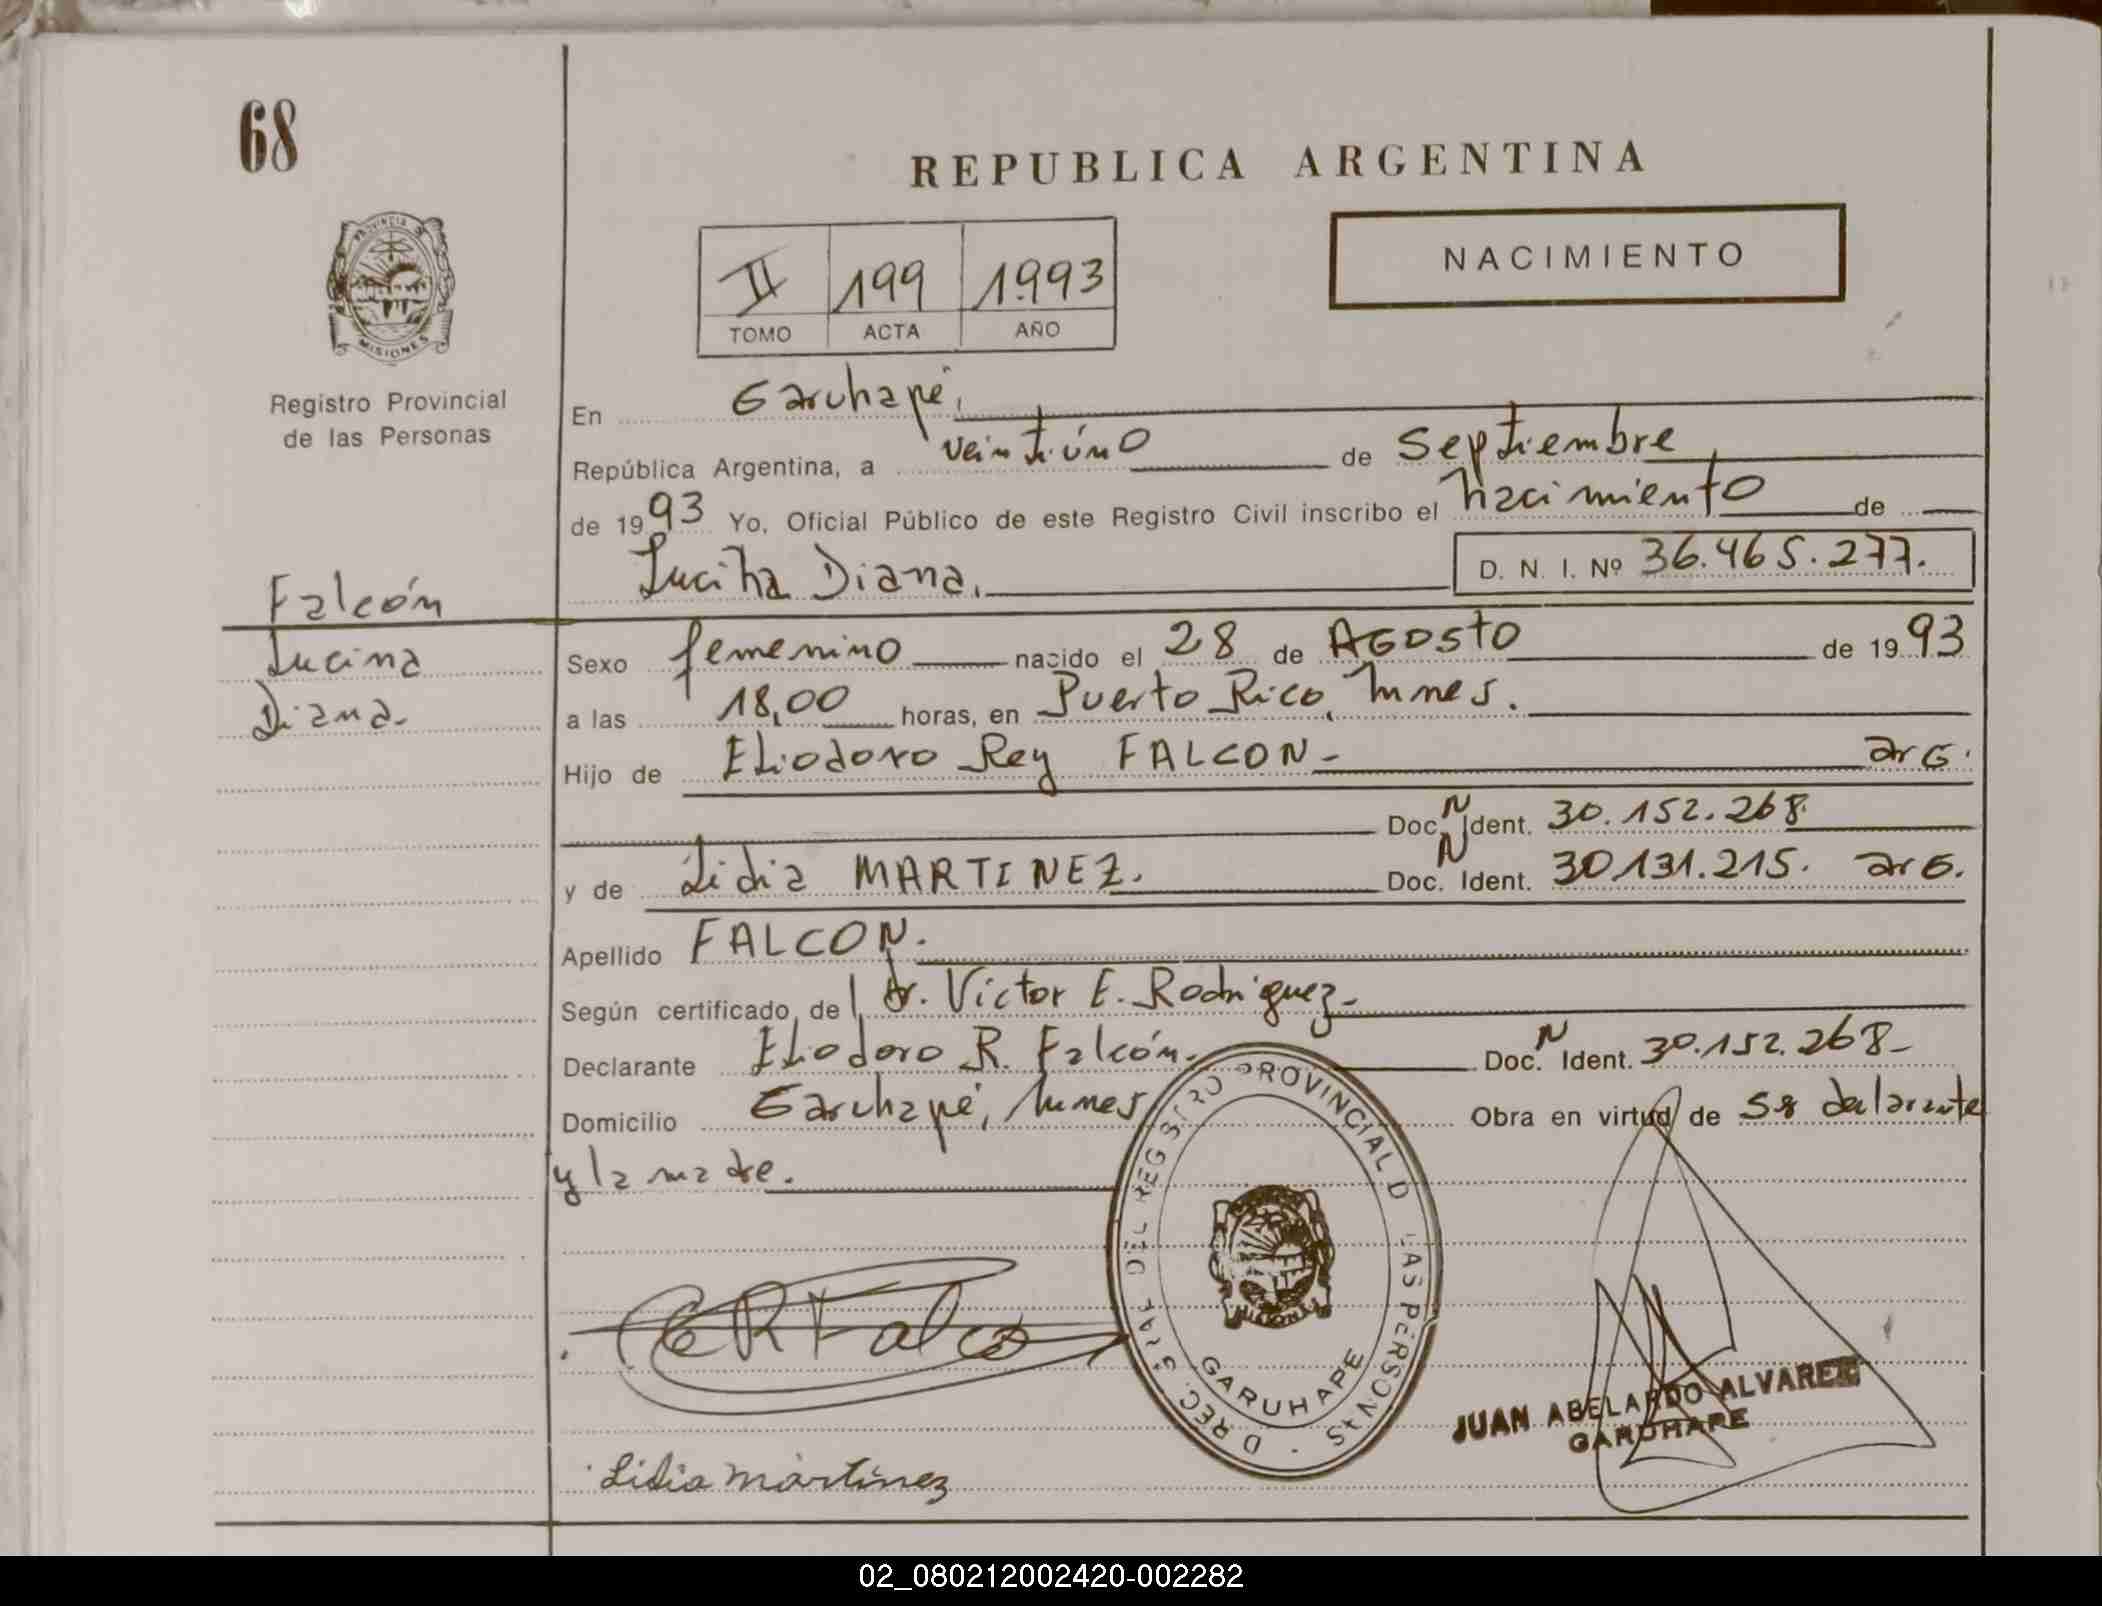 68
REPUBLICA ARGENTINA
PROVINCIA DE
MISIONES
II 199 1993
TOMO ACTA AÑO
NACIMIENTO
Registro Provincial
de las Personas
En Garuhapé,
República Argentina, a veintiúno de Septiembre
de 1993 Yo, Oficial Público de este Registro Civil inscribo el nacimiento de
Lucina Diana. D. N. I. Nº 36.465.277.
Falcón
Lucina
Diana.
Sexo femenino nacido el 28 de AGOSTO de 1993
a las 18,00 horas, en Puerto Rico,
Hijo de Eliodoro Rey FALCON- arG.
Doc. N Ident. 30.152.268.
y de Lidia MARTINEZ. Doc. N Ident. 30131.215. arG.
Apellido FALCON.
Según certificado de Dr. Victor E. Rodriguez-
Declarante Eliodoro R. Falcón. Doc. N Ident. 30.152.268-
Domicilio Garuhapé, Obra en virtud de declarante
y la madre.
ERFalco
Lidia martínez
DEL REGISTRO PROVINCIAL D LAS PERSONAS
GARUHAPE
JUAN ABELARDO ALVAREZ
GARUHAPE
02_080212002420-002282